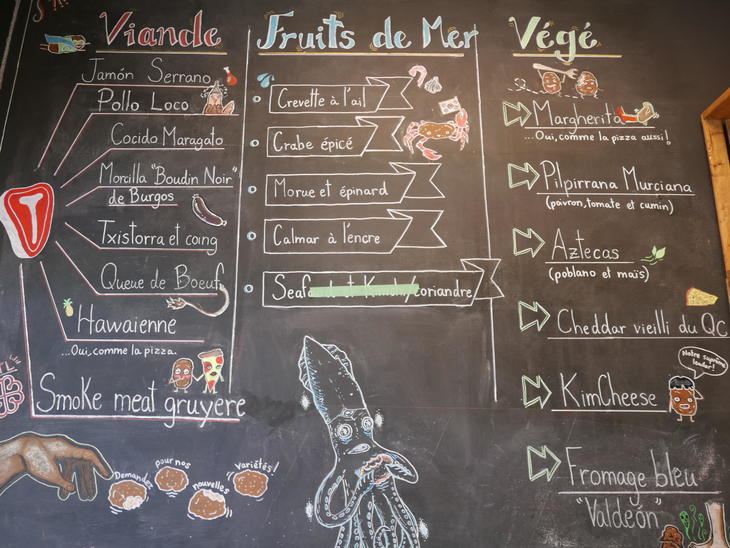 Viande
Jamón Serrano
Pollo Loco
Cocido Maragato
Morcilla "Boudin Noir"
de Burgos
Txistorra et coing
Queue de Boeuf
Hawaienne
...Oui, comme la pizza.
Smoke meat gruyère
Demandez
pour nos
nouvelles
Variétés!
Fruits de Mer
Crevette à l'ail
Crabe épicé
Morue et épinard
Calmar à l'encre
coriandre
Végé
Margherita
...Oui, comme la pizza aussi!
Pilpirrana Murciana
(poivron, tomate et cumin)
Aztecas
(poblano et maïs)
Cheddar vieilli du QC
KimCheese
Notre suprême
leader!
Fromage bleu
"Valdeón"